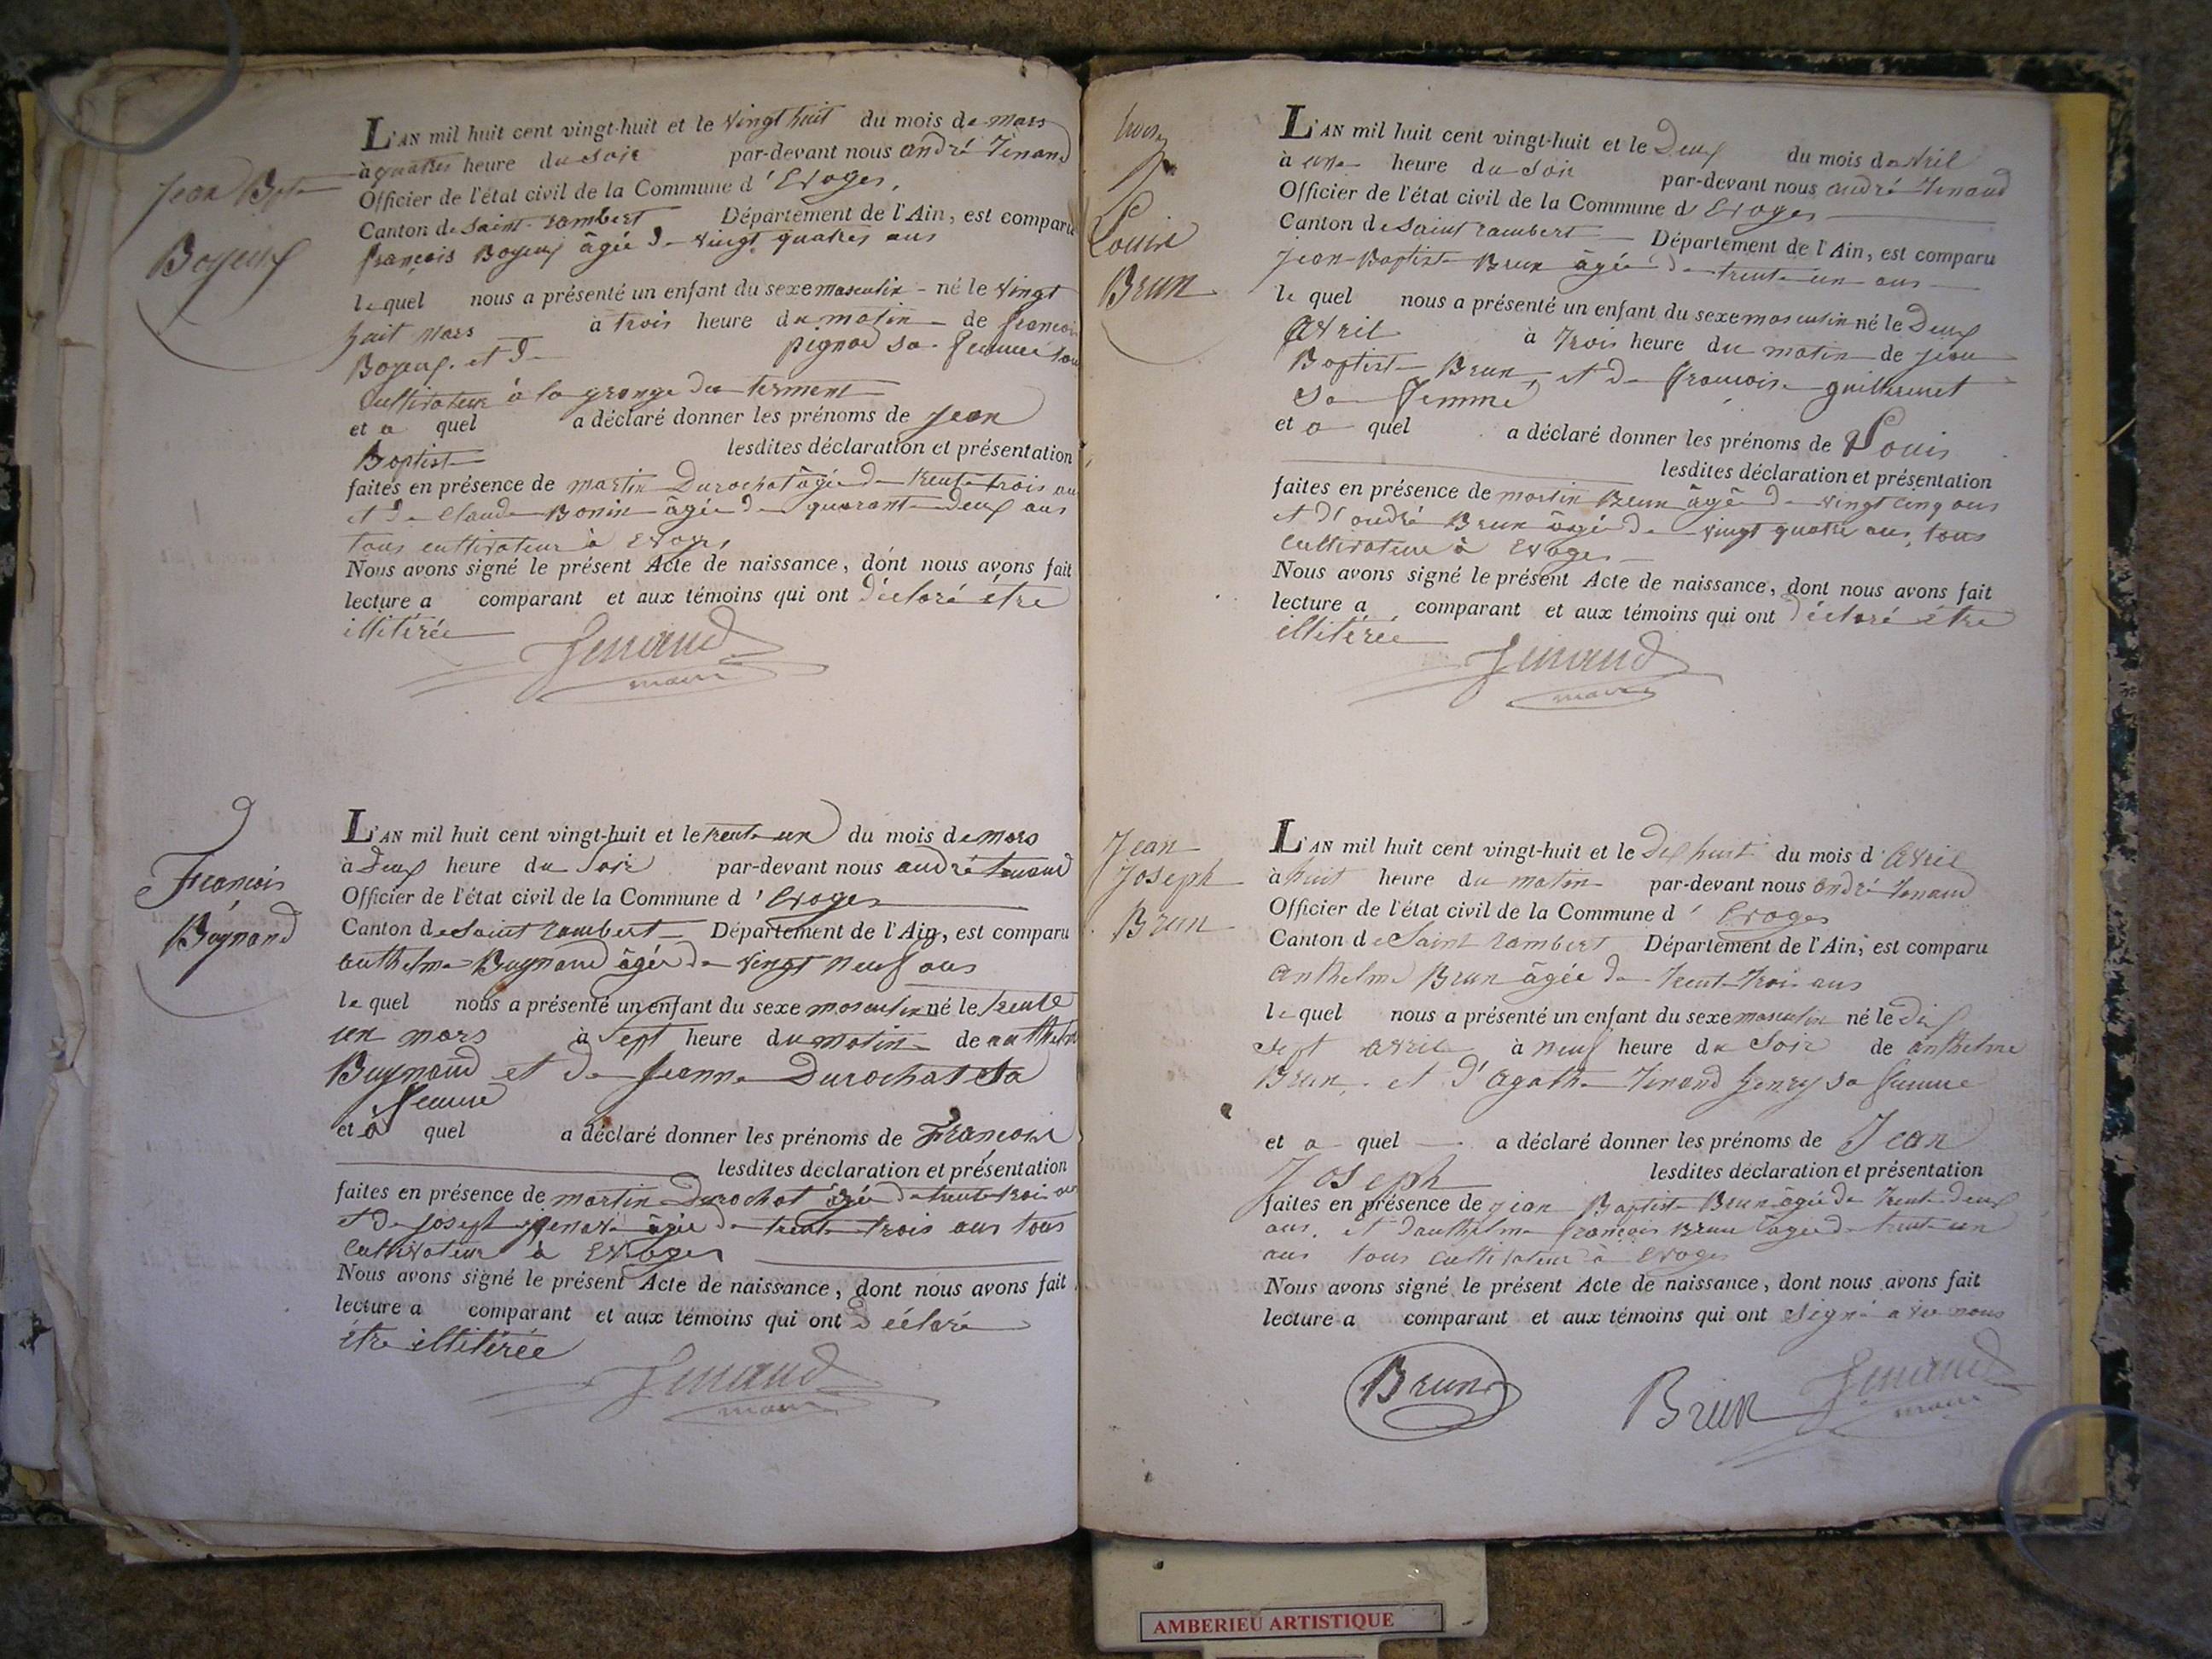 Jean Bpte
Boyeux
L'AN mil huit cent vingt-huit et le vingt huit du mois de mars
à quatres heure du soir par-devant nous andré Tenand
Officier de l'état civil de la Commune d'Evoges,
Canton de Saint-rambert Département de l'Ain, est comparu
françois Boyeux âgée de vingt quatres ans
lequel nous a présenté un enfant du sexe masculin né le vingt
huit mars à trois heure du matin de françois
Boyeux et de pignod sa femme
Cultivateur à la grange du terment
et a quel a déclaré donner les prénoms de jean
Baptiste lesdites déclaration et présentation
faites en présence de martin Durochat âgée de trente trois ans
et de Claude Bonin âgée de quarante deux ans
tous cultivateur à Evoges
Nous avons signé le présent Acte de naissance, dont nous avons fait
lecture a comparant et aux témoins qui ont déclaré être
illitérée
Tenand
maire
François
Buynand
L'AN mil huit cent vingt-huit et le trente un du mois de mars
à deux heure du soir par-devant nous andré tenand
Officier de l'état civil de la Commune d'Evoges
Canton de Saint rambert Département de l'Ain, est comparu
anthelme Buynand âgée de vingt neuf ans
le quel nous a présenté un enfant du sexe masculin né le trente
un mars à sept heure du matin de anthelme
Buynand et de jeanne Durochat sa
femme
et a quel a déclaré donner les prénoms de François
lesdites déclaration et présentation
faites en présence de martin Durochat âgée de trente trois ans
et de joseph âgée de trente trois ans tous
Cultivateur à Evoges
Nous avons signé le présent Acte de naissance, dont nous avons fait
lecture a comparant et aux témoins qui ont déclaré
être illitérée
Tenand
maire
Louis
Brun
L'AN mil huit cent vingt-huit et le Deux du mois d'avril
à une heure du soir par-devant nous andré tenand
Officier de l'état civil de la Commune d'Evoges
Canton de Saint rambert Département de l'Ain, est comparu
jean Baptiste Brun âgée de trente un ans
le quel nous a présenté un enfant du sexe masculin né le Deux
avril à trois heure du matin de jean
Baptiste Brun, et de françoise guillermet
sa femme
et a quel a déclaré donner les prénoms de Louis
lesdites déclaration et présentation
faites en présence de martin Brun âgé de vingt cinq ans
et d'andré Brun âgée de vingt quatre ans, tous
cultivateur à Evoges
Nous avons signé le présent Acte de naissance, dont nous avons fait
lecture a comparant et aux témoins qui ont déclaré être
illitérée
Tenand
maire
Jean
Joseph
Brun
L'AN mil huit cent vingt-huit et le dix huit du mois d'avril
à huit heure du matin par-devant nous andré tenand
Officier de l'état civil de la Commune d'Evoges
Canton de Saint rambert Département de l'Ain, est comparu
anthelme Brun âgée de trente trois ans
le quel nous a présenté un enfant du sexe masculin né le dix
sept avril à neuf heure du soir de anthelme
Brun, et d'agathe tenand henry sa femme
et a quel a déclaré donner les prénoms de Jean
Joseph lesdites déclaration et présentation
faites en présence de jean Baptiste Brun âgée de trente deux
ans, et danthelme françois Brun âgée de trente un
ans tous cultivateur à Evoges
Nous avons signé le présent Acte de naissance, dont nous avons fait
lecture a comparant et aux témoins qui ont signé avec nous
Brun Brun Tenand
maire
AMBERIEU ARTISTIQUE